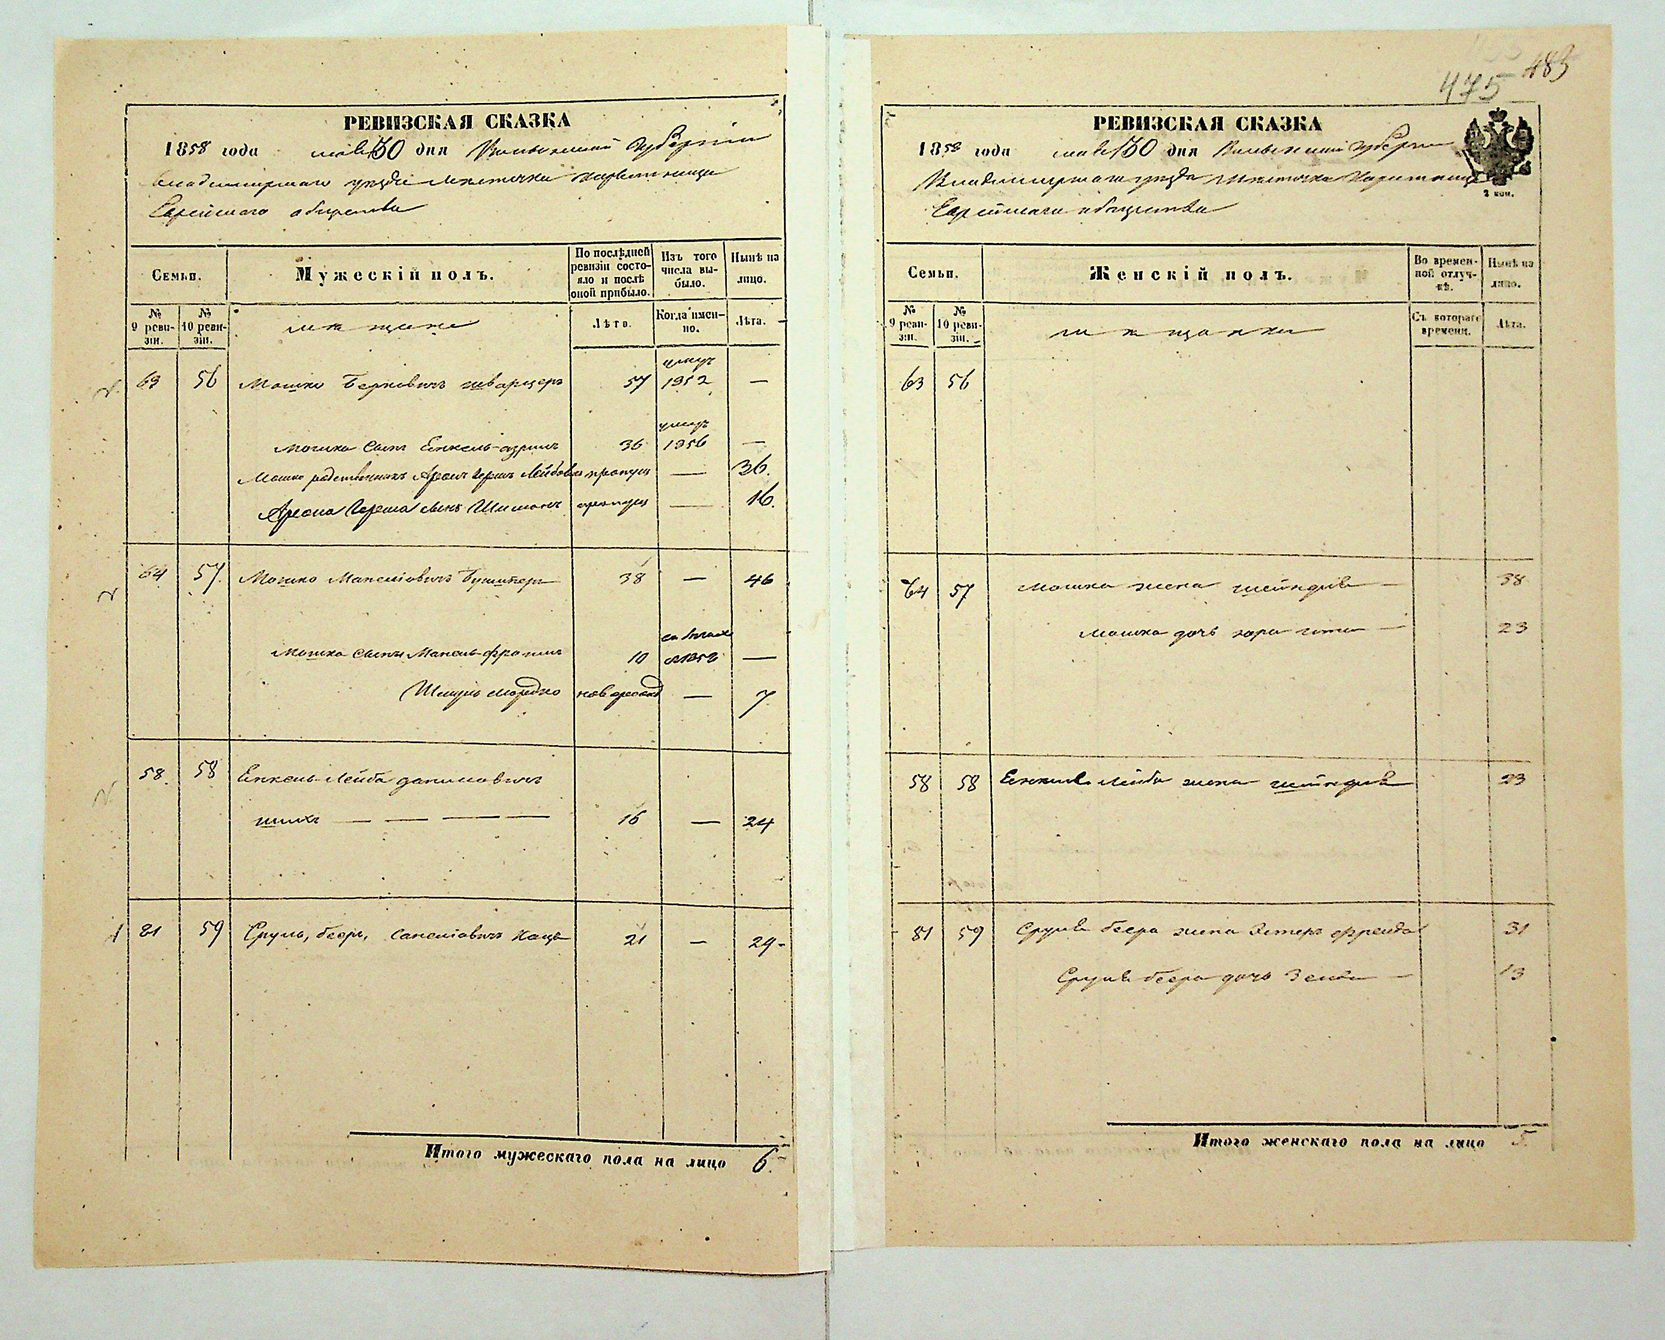 РЕВИЗСКАЯ СКАЗКА
1858 года мая 30 дня Волынской Губернии
Владимирскаго уезда Местечка
Еврейскаго общества
Семьи.
Мужескій полъ.
По послѣдней ревизіи состояло и послѣ оной прибыло.
Изъ того числа выбыло.
Нынѣ на лицо.
№ 9 ревизіи.
№ 10 ревизіи.
мещане
Лѣта.
Когда имянно.
Лѣта.
умеръ
63 56 Мошко Берковичъ Шварцеръ 57 1852 —
умеръ
Мошка сынъ Енкель 36 1856 —
Мошко родственникъ Аронъ Гершъ Лейбовъ пропущ — 36.
Арона Герша сынъ Шимонъ пропущ — 16.
64 57. Мошко Манелiовичъ 38 — 46
Мошка сынъ Манель-Фроимъ 10 —
Шмуль Мордко новорожд — 7
58 58 Енкель-Лейба
— — — — 16 — 24
81 59 Сруль, беръ, Кацъ 21 — 29-
Итого мужескаго пола на лицо 6.
475 483
РЕВИЗСКАЯ СКАЗКА
1858 года мая 30 дня Волынской Губернии
Владимирскаго уезда Местечка
Еврейскаго общества
2 коп.
Семьи.
Женскій полъ.
Во временной отлучкѣ.
Нынѣ на лицо.
№ 9 ревизіи.
№ 10 ревизіи.
мещанки
Съ котораго времени.
Лѣта.
63 56
64 57 Мошка жена Шейндля — 38
Мошка дочь — 23
58 58 Енкеля Лейба жена Шейндля 23
81 59 Сруля бера жена Эстеръ Фрейда 31
Сруля бера дочь — 13
Итого женскаго пола на лицо 5.